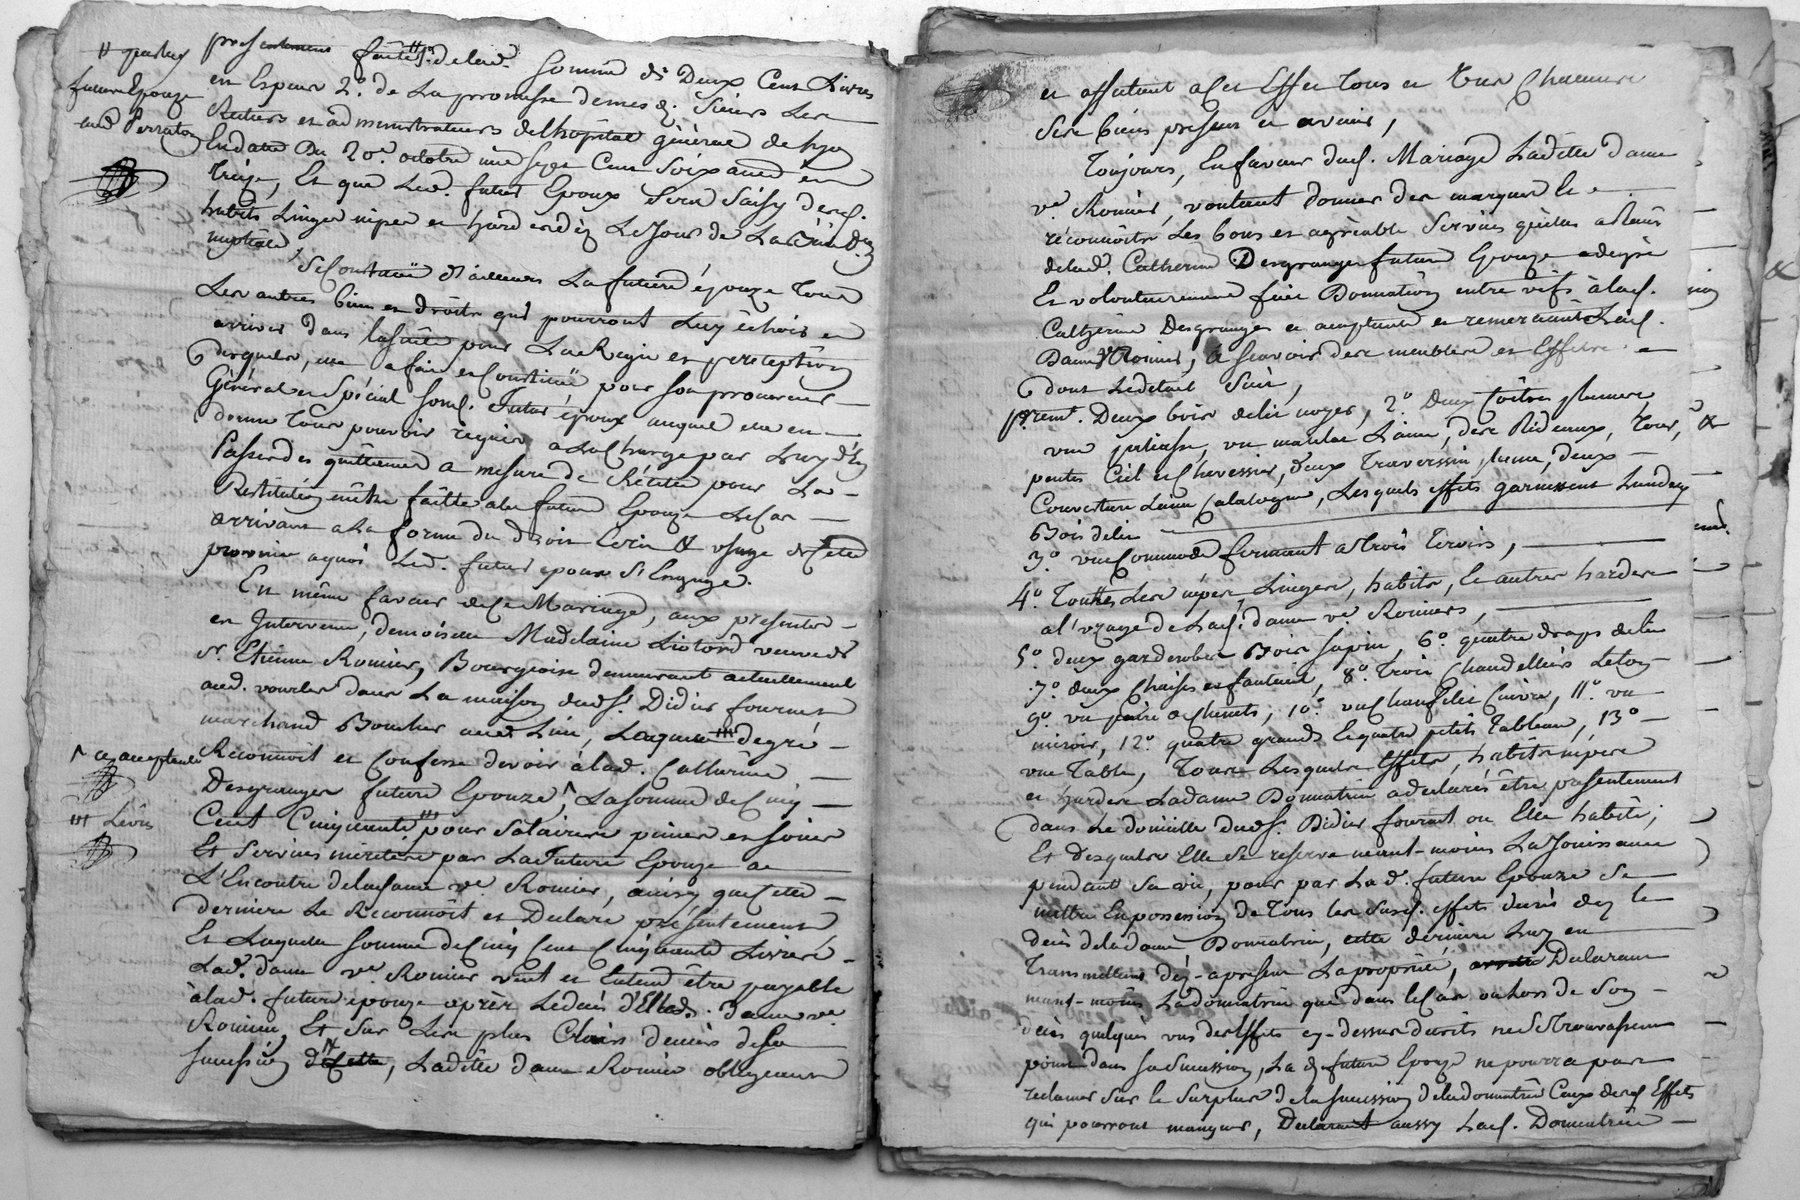 presentement faitte 1º. de lad. somme de Deux Cent Livres
en Espece 2º. de La promesse de mes d. Sieurs Les
Recteurs et administrateurs de l'hôpital général de
En datte Du 20e. octobre mil Sept Cent Soixante et
treize, Et que led. futur Epoux Sera Saisy desd.
habits Linges nipes et hardes dez Le Jour de La Bén.on
nuptiale,
Se Constitue d'ailleurs La future épouze Tous
Les autres biens et droits qui pourront Luy échoir et
arriver dans la suitte pour La Regie et perception
desquels, elle a fait et Constitué pour son procureur
Général et Spécial sond. futur époux auquel elle en
donne Tous pouvoir requis a La Charge par Luy d'En
Passer des quittances a mesure de Récette pour La
Restitution en être faitte a la future Epouze Le Cas
arrivant a La forme du droit Ecrit & usage de Cette
province a quoi Led. futur epoux S'Engage.
En même faveur de Ce Mariage, aux presentes
est Intervenue, demoiselle Madelaine Liotord veuve de
sr. Etienne Romier, Bourgeoise demeurant actuellement
aud. vourles dans La maison dud. Sr. Didier fournet
marchand Boucher aud. Lieu, Laquelle de gré
Reconnoit et Confesse devoir à lad. Catherine
Desgranges future Epouze, La somme de Cinq
Cent Cinquante pour Salaires peines et soins
Et Services mérités par La future Epouze a
L'Encontre de lad. dame ve. Romier, ainsy que Cette
derniere Le Reconnoit et Declare présentement
Et Laquelle somme de Cinq Cent Cinquante Livres
Lad. dame ve. Romier veut et Entend être payable
à lad. future epouze après Le decès d'Elle d. dame ve.
Romier, Et Sur Les plus Clairs deniers de sa
succession, Laditte dame Romier obligeant
par les
future Epouze
aud. Perraton
ce acceptante
Livres
et affectant a Cet Effet Tous et Un Chacuns
Ses biens présens et avenir,
Toujours, En faveur dud. Mariage Laditte dame
ve. Romier, voulant donner des marques &
réconnoitre Les bons et agréable Services qu'elle a Reçus
de lad. Catherine Desgranges future Epouze a de gré
Et volontairement fait Donnation entre vifs à lad.
Catherine Desgranges et acceptante et remerciante Lad.
Dame ve Romier, à Sçavoir des meubles et Effets
dont Le detail Suit,
premt. Deux bois de lit noyer, 2º. Deux Coîtres plumes,
une pailiasse, un matelas Laine, des Rideaux, Tour,
pentes Ciel et Chevessier, deux Traverssin plume, deux
Couverture Laine Catalogne, Lesquels effets garnissent Lundesd.
Bois de lit
3º. une Commode fermant a trois Tiroirs,
4º. Touttes Les nipes, Linges, habits, & autres hardes
a l'uzage de Lad. dame ve. Romiers,
5º. deux garderobes Bois Sapin, 6º. quatre draps de lit
7º. deux Chaises et fauteuil, 8º. Trois Chandelliers Leton
9º. un paire de Chenets, 10º. un Chauffelit Cuivre, 11º. un
miroir, 12º. quatre grands & quatre petits Tableau, 13º.
une Table, Tous Lesquels Effets, habits nipes
et hardes Ladame Donnatrice a declarés être présentement
dans Le domicille dud. Sr. Didier fournet ou Elle habite,
Et desquels Elle Se reserve neant-moins La Jouissance
pendant Sa vie, pour par Lad. future Epouze Se
mettre En possession de Tous les Susd. effets decris dez le
decès de la dame Donnatrice, cette derniere Luy en
Transmettant dèz-apresent La propriété, Declarant
neant-moins La donnatrice que dans le Cas ou hors de Son
decès quelques uns des Effets cy-dessus decrits ne Se trouvassent
point dans sa Succession, La d. future Epouze ne pourra pas
reclamer Sur le Surplus de la succession de la donnatrice Ceux desd. Effets
qui pourront manquer, Declarant aussy Lad. Donnatrice